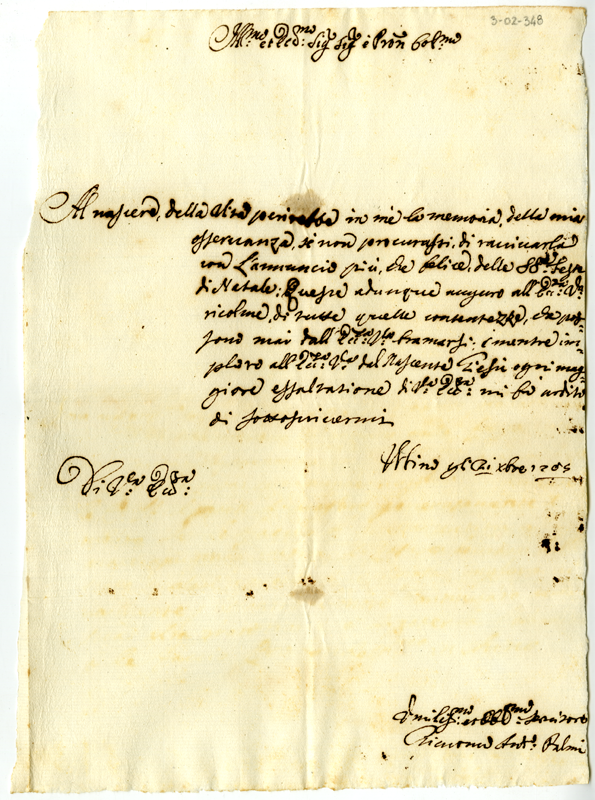 3-02-348
Ill.mo et Ecc.mo Sig.r Sig.r e Pron Col.mo
Al nascere, della Vita perirebbe in me la memoria, della mia
osservanza, se non procurassi, di ravivarla
con L'annuncio più, che felice, delle SS.te Feste
di Natale: Queste adunque auguro all'Ecc.za V.ra
ricolme, di tutte quelle contentezze, che pos-
sono mai dall'Ecc.za V.ra bramarsi: e mentre im-
ploro all'Ecc.za V.ra dal Nascente Giesù ogni mag-
giore essaltatione di V.ra Ecc.za mi fò ardito
di sottoscrivermi
Di V.ra Ecc.za
Udine li xbre
Humiliss.mo et Obl.mo Servitore
Ant.o